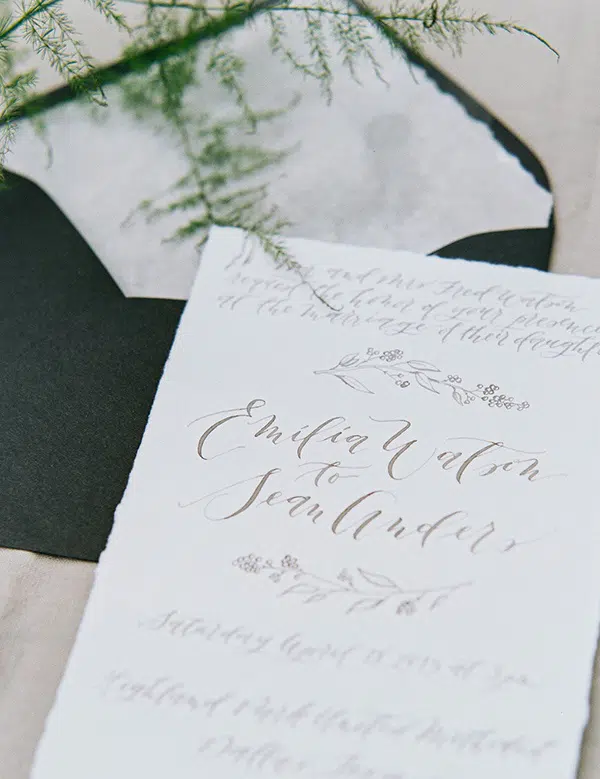 and Mrs Fred Watson
request the honor of your presence
at the marriage of their daughter
Emilia Watson
to
Sean Anders
Saturday April at
Highland Park United Methodist
Dallas, Texas